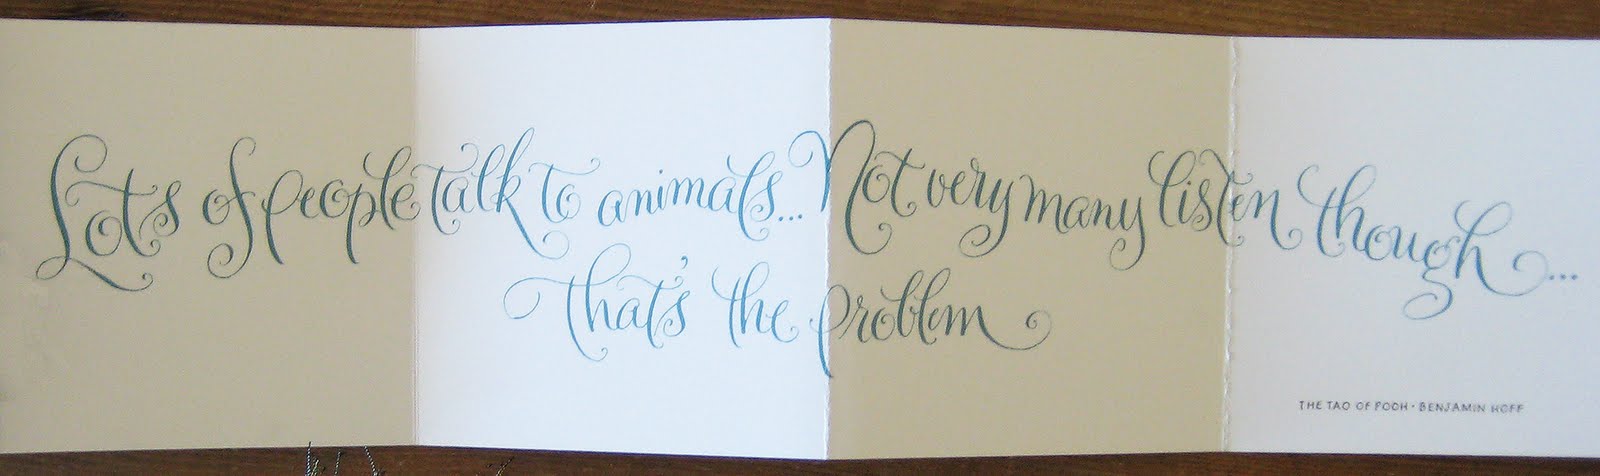 Lots of people talk to animals... Not very many listen though...
that's the problem
THE TAO OF POOH · BENJAMIN HOFF